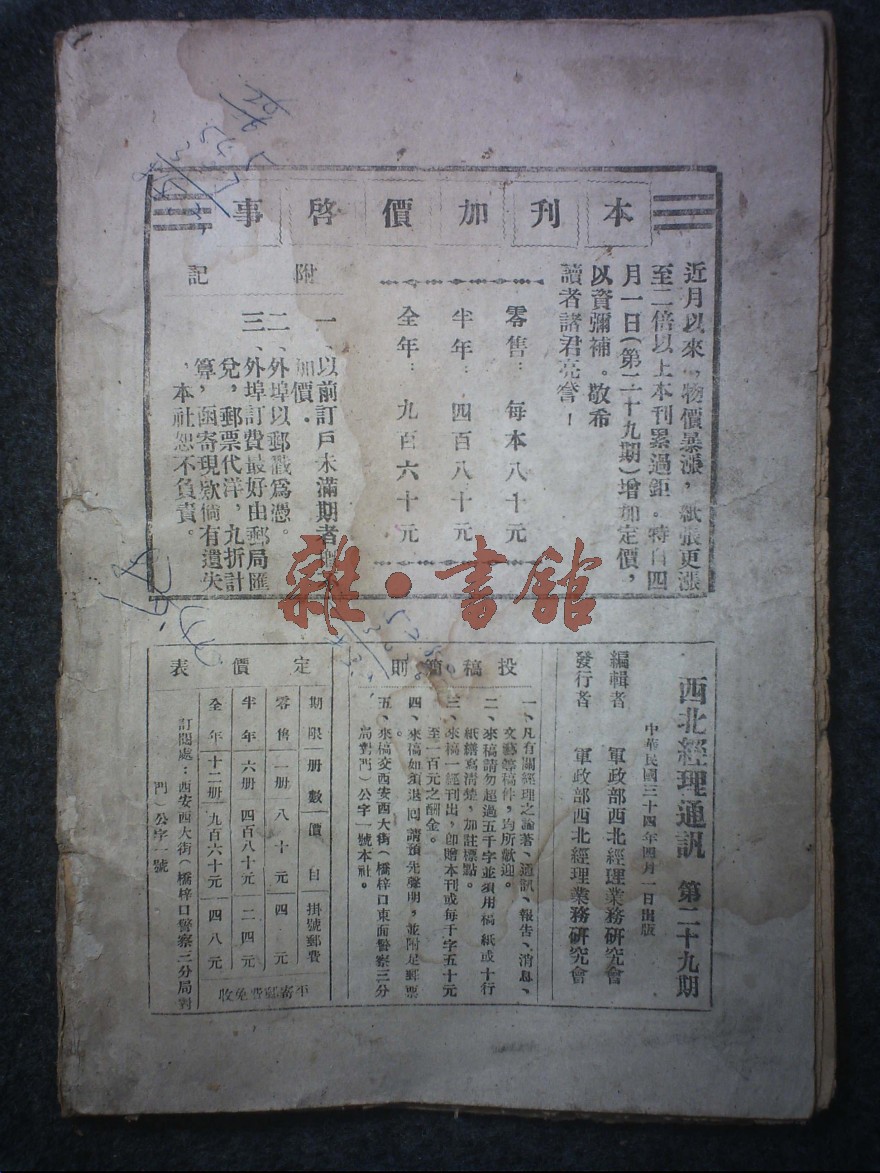 本刊加價啓事
近月以來，物價暴漲，紙張更漲
至二倍以上本刊累過鉅。特自四
月一日(第二十九期)增加定價，
以資彌補。敬希
讀者諸君亮詧！
零售：每本八十元
半年：四百八十元
全年：九百六十元
附記
一、以前訂戶未滿期者
加價．
二、外埠以郵戳爲憑。
三、外埠訂費最好由郵局匯
兌，郵票代洋，九折計
算，函寄現欵倘有遺失
，本社恕不負責。
雜·書舘
西北經理通訊 第二十九期
中華民國三十四年四月一日出版
編輯者 軍政部西北經理業務研究會
發行者 軍政部西北經理業務研究會
投稿簡則
一、凡有關經理之論著、通訊、報告、消息、
文藝等稿件，均所歡迎。
二、來稿請勿超過五千字並須用稿紙或十行
紙繕寫清楚，加註標點。
三、來稿一經刊出，卽贈本刊或每千字五十元
至一百元之酬金。
四、來稿如須退囘請預先聲明，並附足郵票
。
五、來稿交西安西大街(橋梓口東面警察三分
局對門)公字一號本社。
定價表
期限 册數 價目 掛號郵費
零售 一册 八十元 四元
半年 六册 四百八十元 二四元
全年 十二册 九百六十元 四八元
平寄郵費免收
訂閱處：西安西大街(橋梓口警察三分局對
門)公字一號